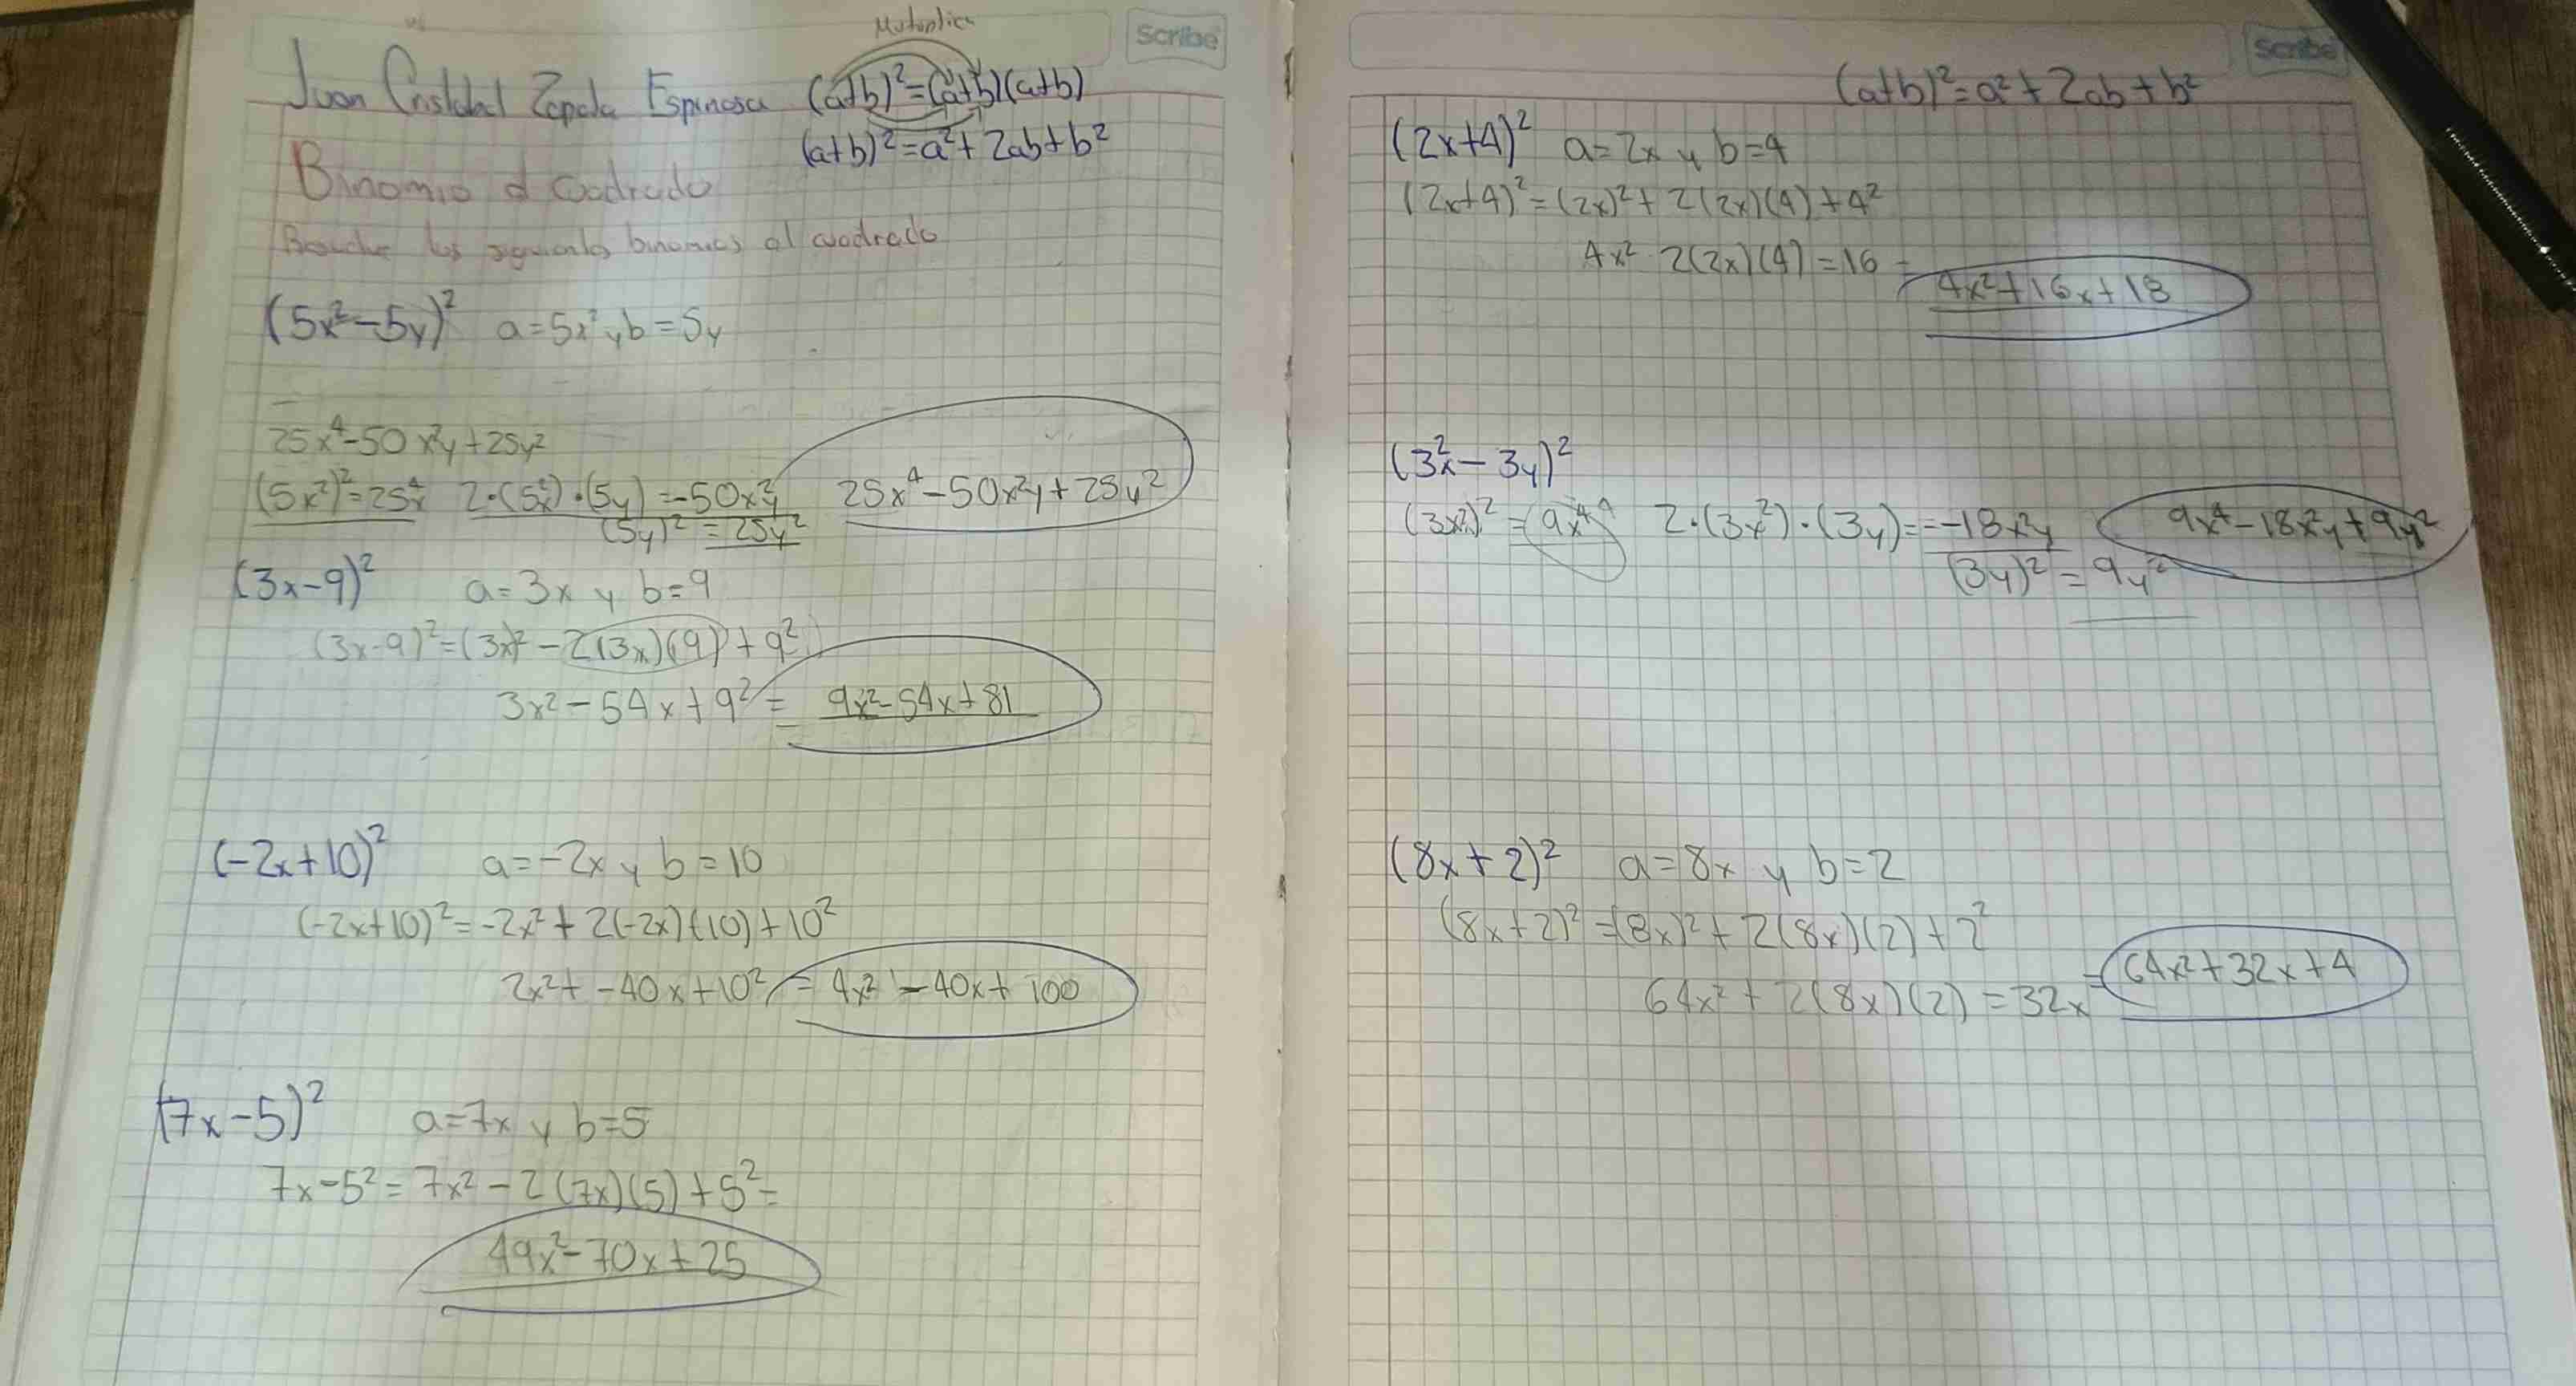 Multiplica
Scribe
Juan Cristobal Zepeda Espinosa (a+b)²=(a+b)(a+b)
(a+b)²=a²+2ab+b²
Binomio al cuadrado
Resuelve los siguientes binomios al cuadrado
(5x²-5y)² a=5x² y b=5y
25x⁴-50x²y+25y²
(5x²)²=25x⁴ 2·(5x²)·(5y)=-50x²y 25x⁴-50x²y+25y²
(5y)²=25y²
(3x-9)² a=3x y b=9
(3x-9)²=(3x)²-2(3x)(9)+9²
3x²-54x+9²= 9x²-54x+81
(-2x+10)² a=-2x y b=10
(-2x+10)²=-2x²+2(-2x)(10)+10²
2x²+-40x+10²=4x²-40x+100
(7x-5)² a=7x y b=5
7x-5²=7x²-2(7x)(5)+5²=
49x²-70x+25
Scribe
(a+b)²=a²+2ab+b²
(2x+4)² a=2x y b=4
(2x+4)²=(2x)²+2(2x)(4)+4²
4x² 2(2x)(4)=16 = 4x²+16x+18
(3x²-3y)²
(3x²)²=9x⁴ 2·(3x²)·(3y)=-18x²y 9x⁴-18x²y+9y²
(3y)²=9y²
(8x+2)² a=8x y b=2
(8x+2)²=(8x)²+2(8x)(2)+2²
64x²+2(8x)(2)=32x =64x²+32x+4